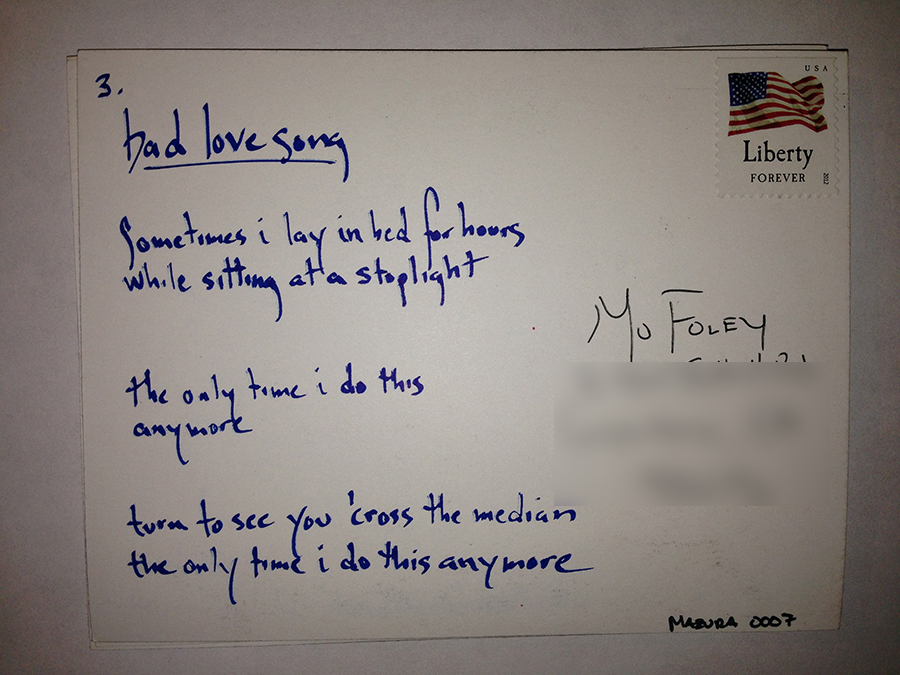 3.
bad love song
Sometimes i lay in bed for hours
while sitting at a stoplight
the only time i do this
anymore
turn to see you 'cross the median
the only time i do this anymore
USA
Liberty
FOREVER
2012
Mo Foley
MAZURA 0007